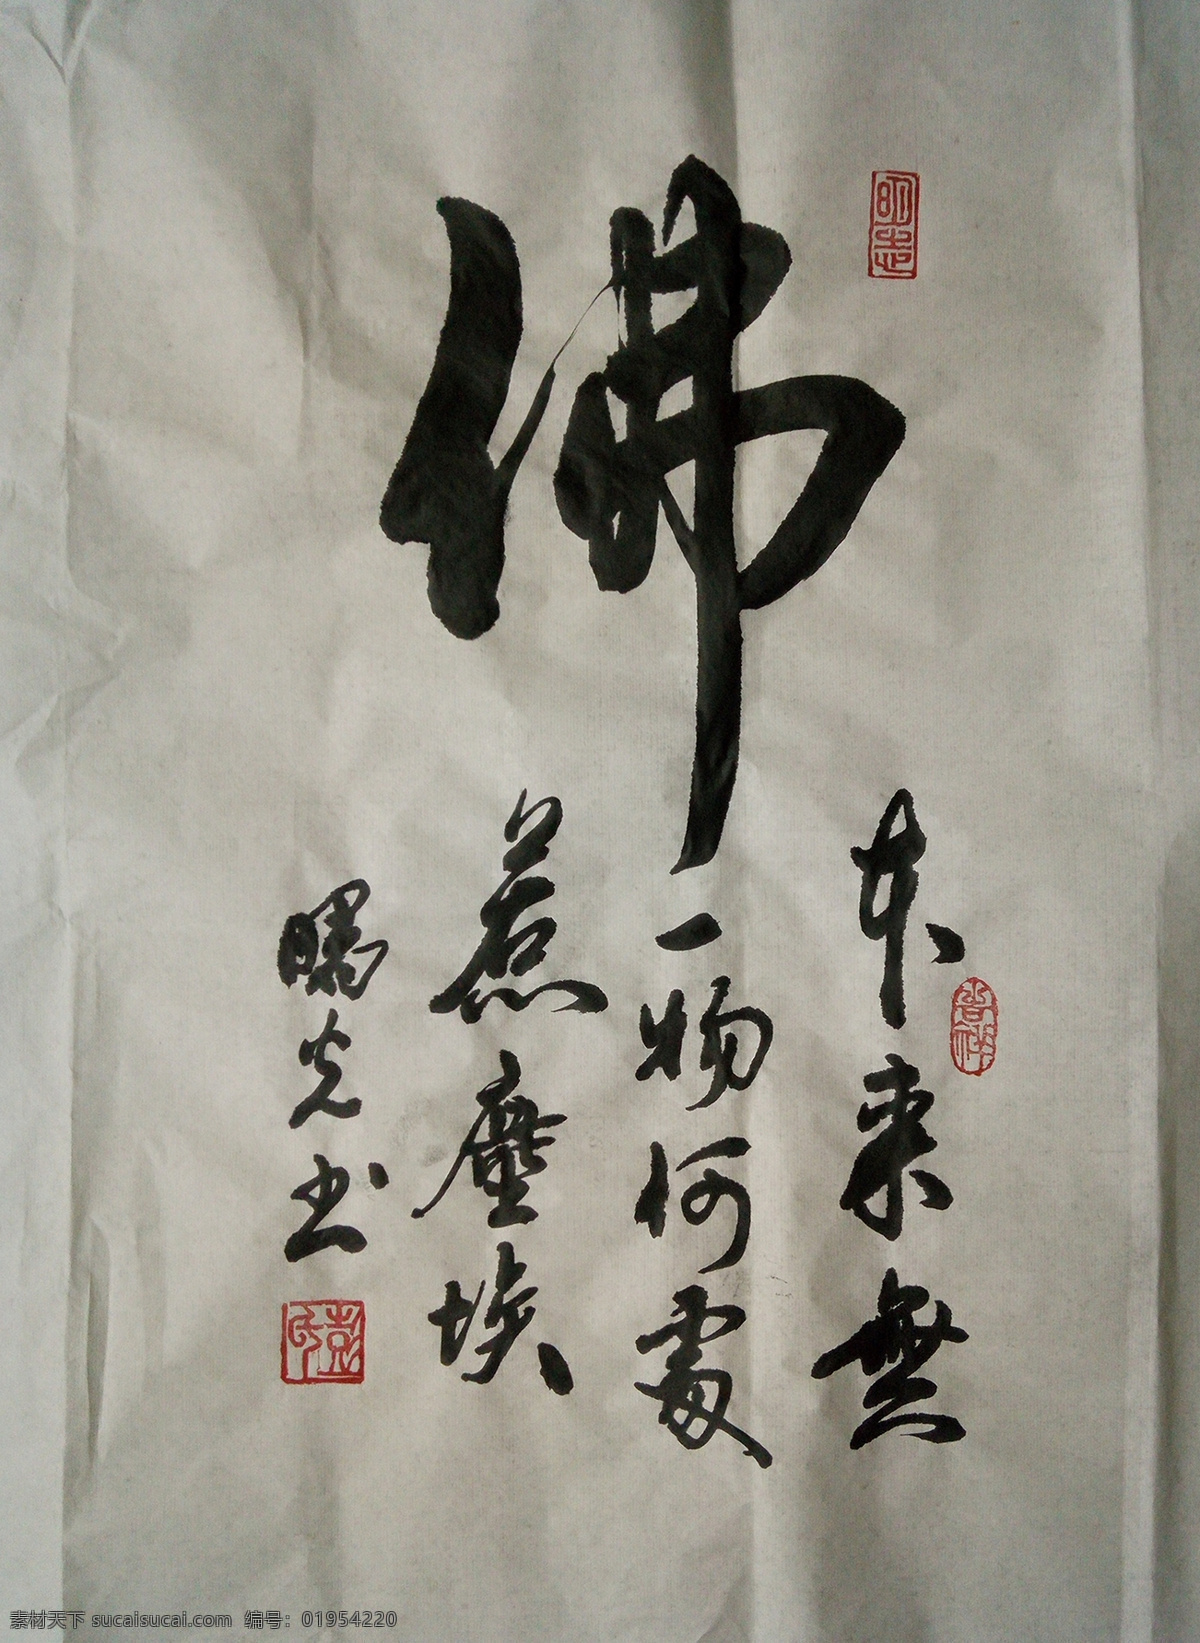 佛
本来無
一物何處
惹塵埃
曙光书
明志
吉祥
彭氏
素材天下 sucaisucai.com 编号：01954220